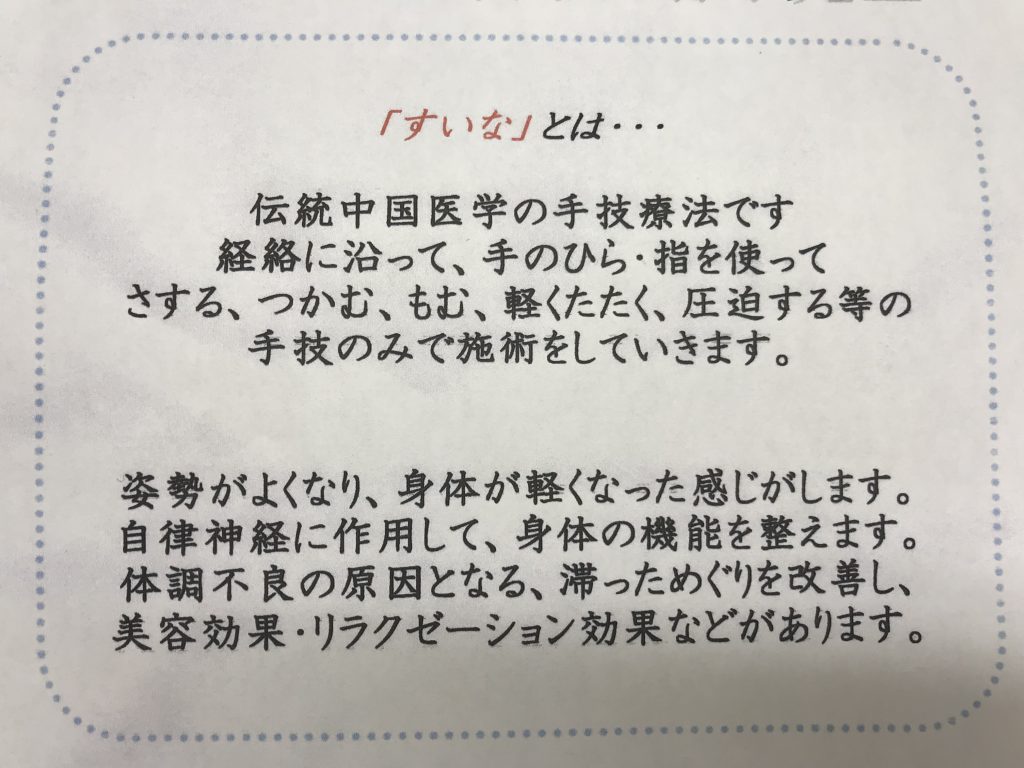 「すいな」とは・・・
伝統中国医学の手技療法です
経絡に沿って、手のひら・指を使って
さする、つかむ、もむ、軽くたたく、圧迫する等の
手技のみで施術をしていきます。
姿勢がよくなり、身体が軽くなった感じがします。
自律神経に作用して、身体の機能を整えます。
体調不良の原因となる、滞っためぐりを改善し、
美容効果・リラクゼーション効果などがあります。